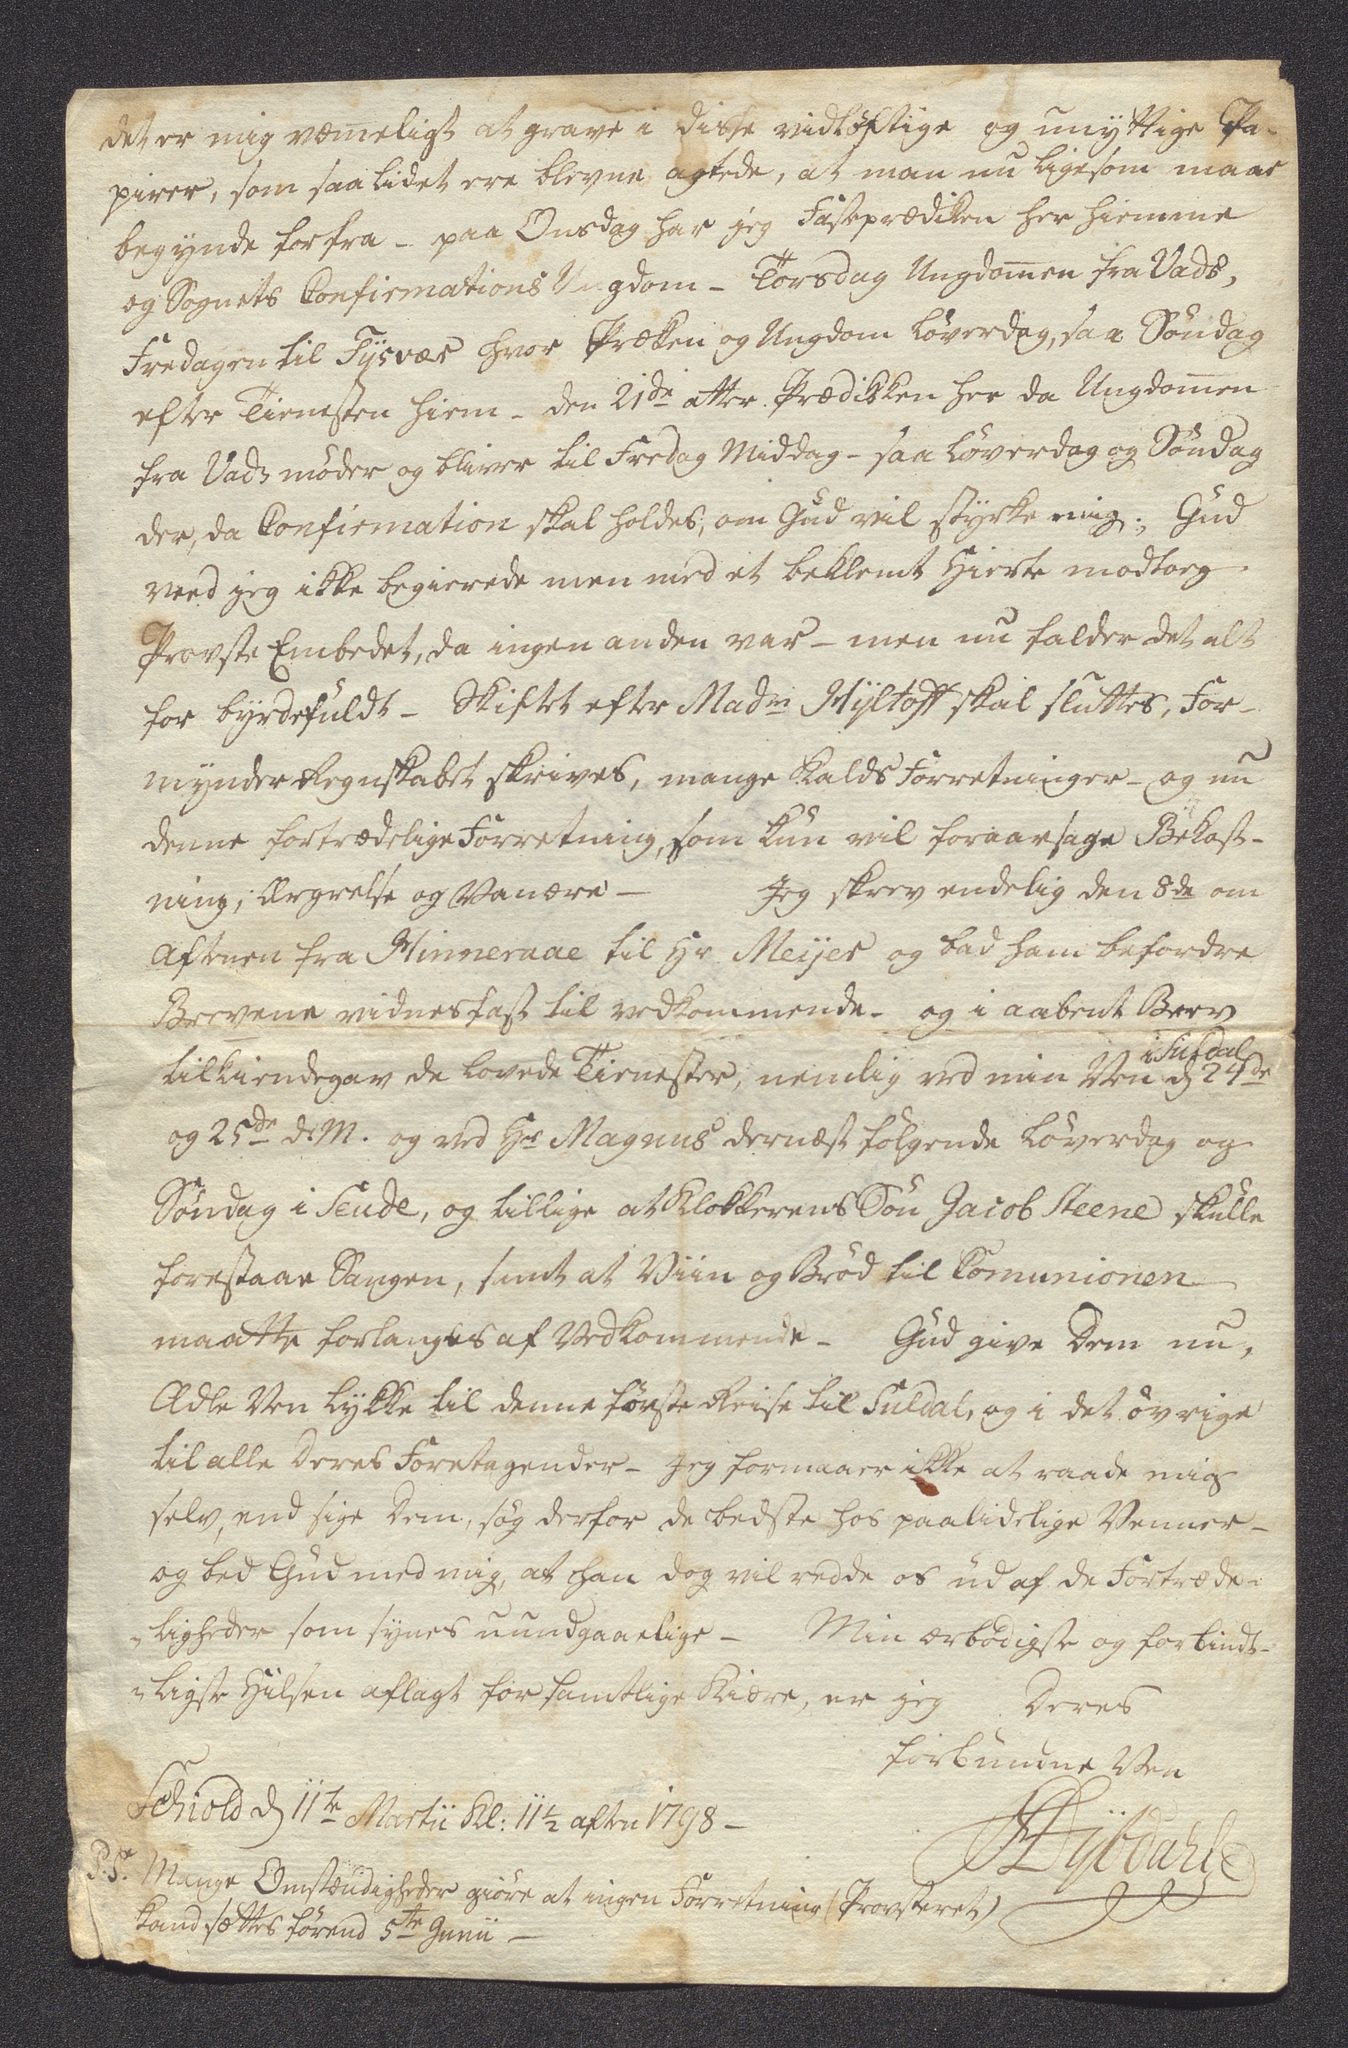 det er mig væmeligt at grave i disse vidløftige og unyttige Pa-
pirer, som saa lidet ere blevne agtede, at man nu ligesom maae
begynde forfra – paa Onsdag har jeg Fasteprædiken her hiemme
og Sognets Confirmations Ungdom – Torsdag Ungdom̅en fra Vads,
Fredagen til Tysvær hvor Præken og Ungdom Løverdag, saa Søndag
efter Tienesten hiem – den 21de atter Prædikken her da Ungdom̅en
fra Vads møder og bliver til Fredag Middag – saa Løverdag og Søndag
der, da Confirmation skal holdes, om Gud vil styrke mig; Gud
veed jeg ikke begierede men med et beklemt Hierte modtog
Provste Embedet, da ingen anden var – men nu falder det alt
for byrdefuldt – Skiftet efter Madm Hyltoff skal sluttes, For-
mynder Regnskabet skrives, mange Kalds Forretninger – og nu
denne fortrædelige Forretning, som kun vil foraarsage Bekost-
ning, Ærgrelse og Vanære – Jeg skrev endelig den 8de om
Aftenen fra Hinneraae til Hr Meijer og bad ham befordre
Brevene vidnesfast til vedkommende – og i aabent Brev
tilkiendegav de lovede Tienester, nemlig ved min Ven i Suldal d 24de
og 25de d.M. og ved Hr Magnus dernæst følgende Løverdag og
Søndag i Seude, og tillige at Klokkerens Søn Jacob Steene skulle
forestaae Sangen, samt at Viin og Brød til Com̅unionen
maatte forlanges af Vedkommende – Gud give Dem nu,
Ædle Ven Lykke til denne første Reise til Suldal, og i det øvrige
til alle Deres Foretagender – jeg formaaer ikke at raade mig
selv, end sige Dem, søg derfor de bedste hos paalidelige Venner –
og bed Gud med mig, at han dog vil redde os ud af de Fortræde-
ligheder som synes uundgaaelige – Min ærbødigste og forbindt-
ligste Hilsen aflagt for samtlige Kiære, er jeg Deres
forbundne Ven
Schiold d 11te Martii Kl: 11½ aften 1798 –
Dybdahl
P.S. Mange Omstændigheder giøre at ingen Forretning (Provsteret)
kand sættes førend 5te Junii –